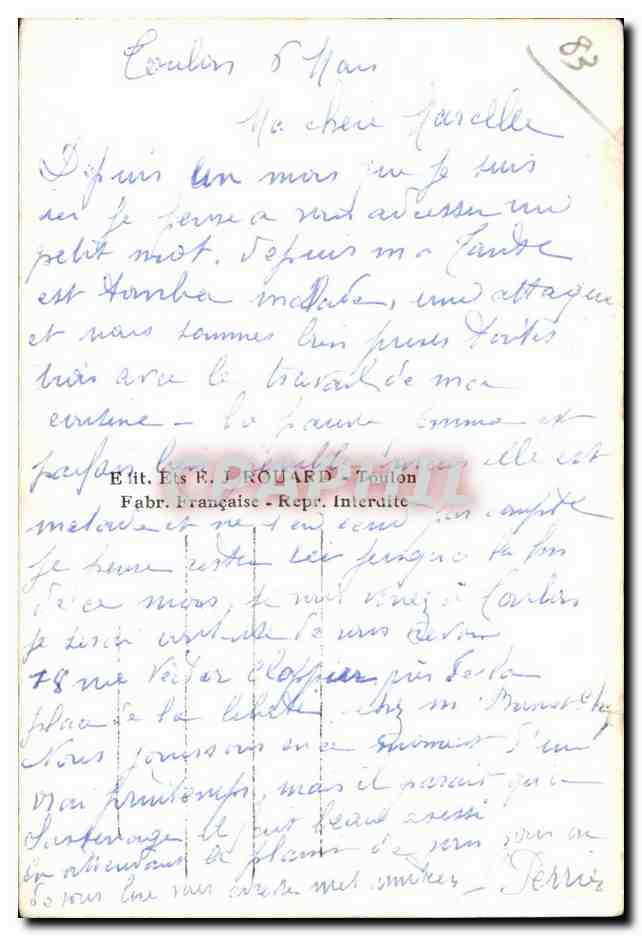 Toulon 6 Mars
83
Ma chère Marcelle
Depuis un mois que je suis
ici je pense a vous adresser un
petit mot. depuis ma tante
est tombé malade, une attaque
et nous sommes bien prises toutes
trois avec le travail de ma
cousine - la pauvre Emma est
parfois elle est
Edit. Ets E. ROUARD - Toulon
Fabr. Française - Repr. Interdite
malade et ne s'en rend pas compte
Je pense rester ici jusqu'a la fin
de ce mois, Si vous venez à Toulon
je serai contente de vous revoir
18 rue Victor Clappier près de la
place de la liberté chez m.
Nous jouissons en ce moment d'un
vrai printemps, mais il parait qu'a
Sassenage il fait beau aussi
En attendant le plaisir de vous
de vous lire mes amitiés Perrin